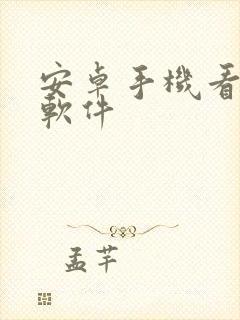 安卓手機看
軟件
孟芊